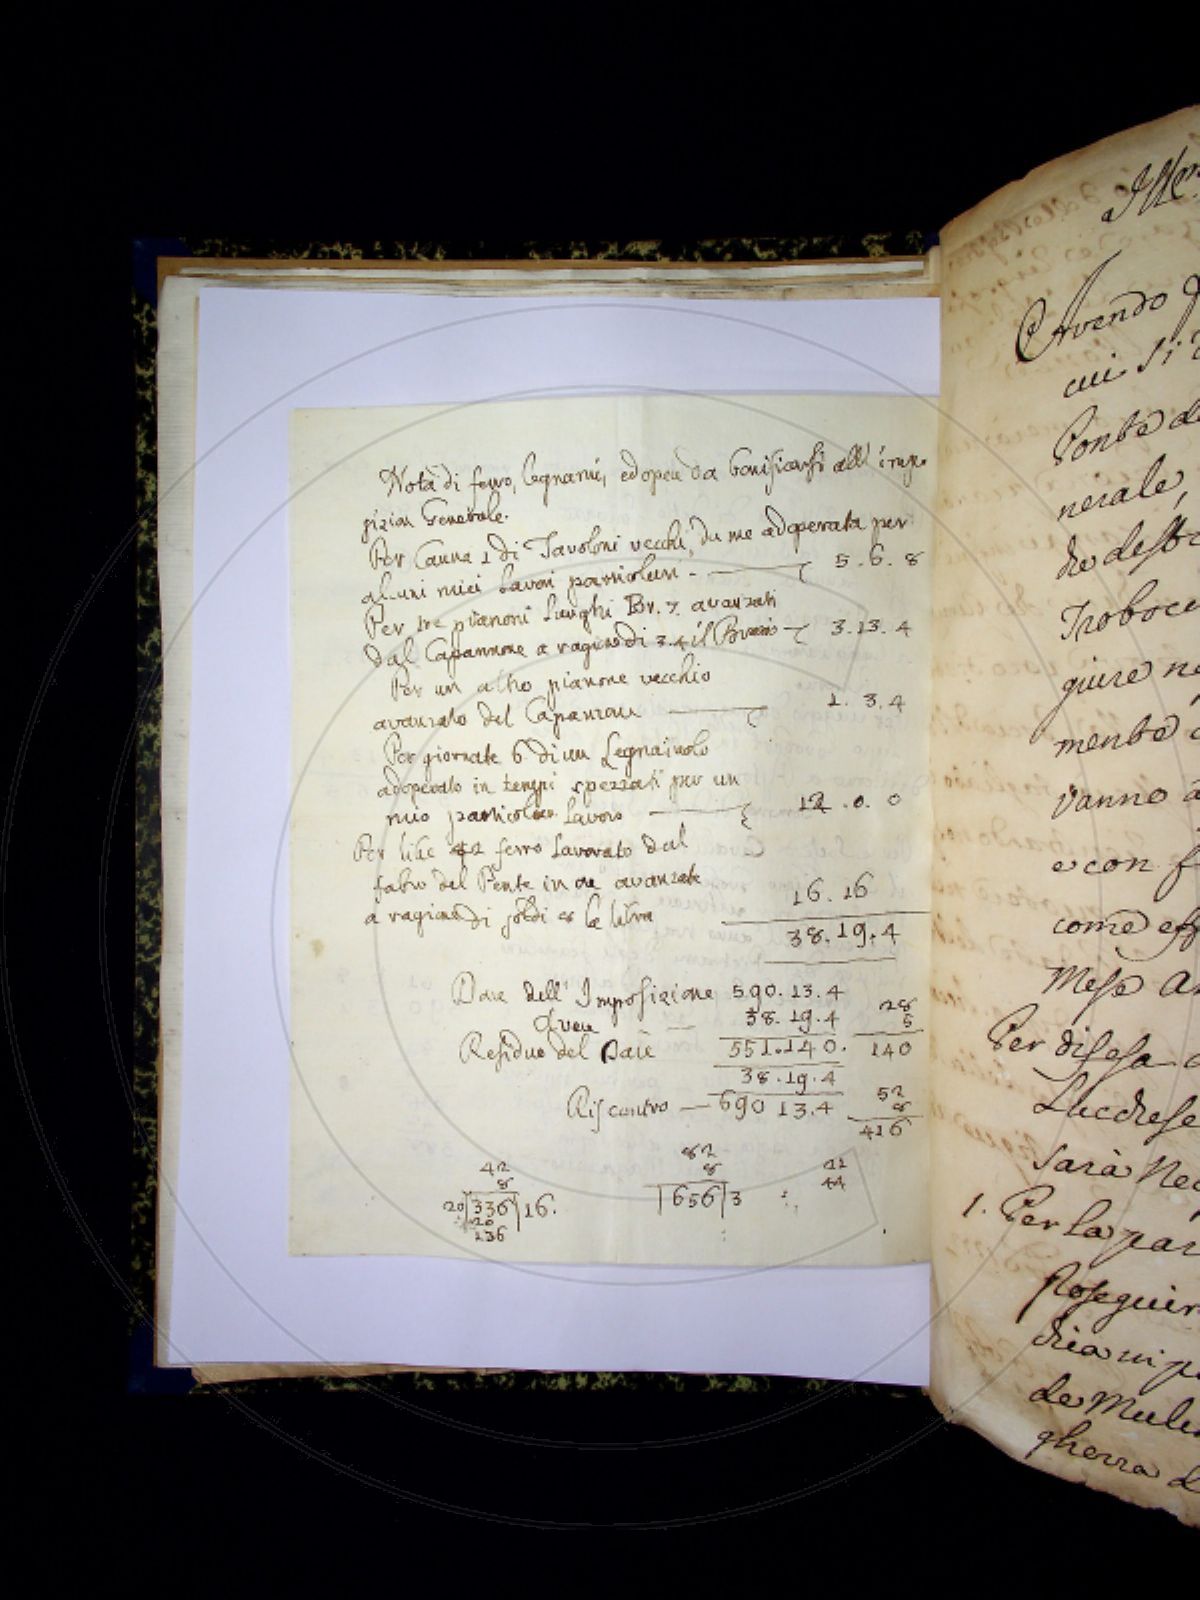 Nota di ferro, legnami, ed opere da bonificarsi all' impo
sizion Generale.
Per Canna 1 di Tavoloni vecchi, da me adoperata per
alcuni miei lavori particolari - 5.6.8
Per tre pianoni lunghi Br. 7. avanzati
dal Capannone a ragione di 3.4 il Braccio 3.13.4
Per un altro pianone vecchio
avanzato del Capannone 1.3.4
Per giornate 6 di un Legnaiuolo
adoperato in tempi spezzati per un
mio particolare lavoro 12.0.0
Per libe 42 ferro lavorato dal
fabro del Ponte in avanzate
a ragione di soldi 8 la libra 16.16
38.19.4
Dare dell' Imposizione 590.13.4
Avere 38.19.4
Residuo del Dare 551.140.
38.19.4
Riscontro — 690 13.4
28
5
140
52
8
416
42
8
20|336|16.
20
136
82
8
|656|3
22
44
Illm
Avendo
cui si
Ponte de
nerale,
che desti
Trabocc
guire ne
mente
vanno a
e con f
come eff
Mese A
Per difesa
Lucchese
sarà Ne
1. Per la par
Proseguir
de Muli
gherra d